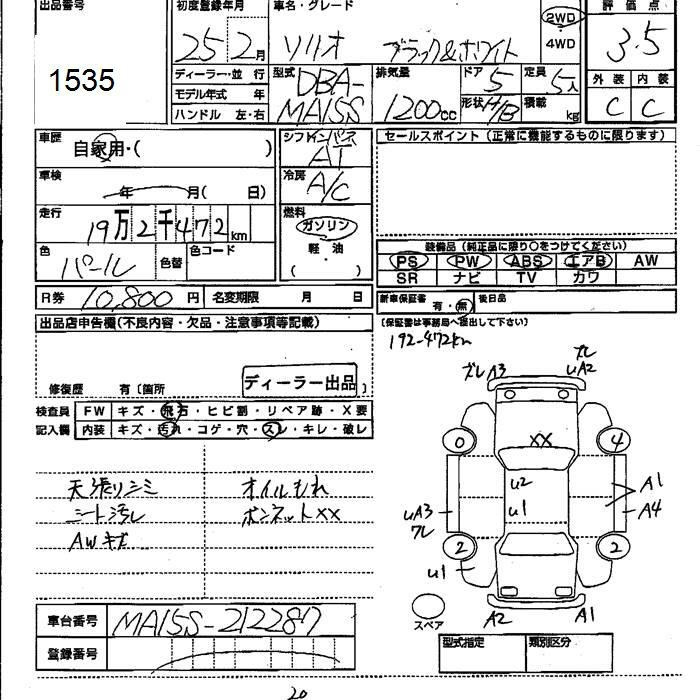 出品番号
1535
初度登録年月
25 2月
車名・グレード
ソリオ ブラック&ホワイト
2WD
4WD
評価点
3.5
外装 内装
C C
ディーラー・並 行
モデル年式 年
ハンドル 左・右
型式
DBA-
MA15S
排気量
1200cc
ドア 5
形状 H/B
定員 5人
積載 kg
車歴
自家用・( )
車検
年 月( 日)
走行
19万2千472km
色
パール
色替
色コード
シフト インパネ
AT
冷房
A/C
燃料
ガソリン
軽・油
( )
セールスポイント (正常に機能するものに限ります)
装備品 (純正品に限り○をつけてください)
PS PW ABS エアB AW
SR ナビ TV カワ
R券 10,800 円 名変期限 月 日
新車保証書 有・無 後日品
(保証書は事務局へ提出して下さい)
出品店申告欄(不良内容・欠品・注意事項等記載)
192-472km
修復歴 有〔箇所 〕
ディーラー出品
検査員
記入欄
FW キズ・飛石・ヒビ割・リペア跡・X要
内装 キズ・汚れ・コゲ・穴・スレ・キレ・破レ
天張りシミ
シート汚レ
AWキズ
オイルもれ
ボンネットXX
ズレA3
ズレ
uA2
0
XX
4
u2
u1
A1
A4
uA3
ワレ
2
2
u1
A2
A1
スペア
車台番号 MA15S-212287
登録番号
型式指定 類別区分
20